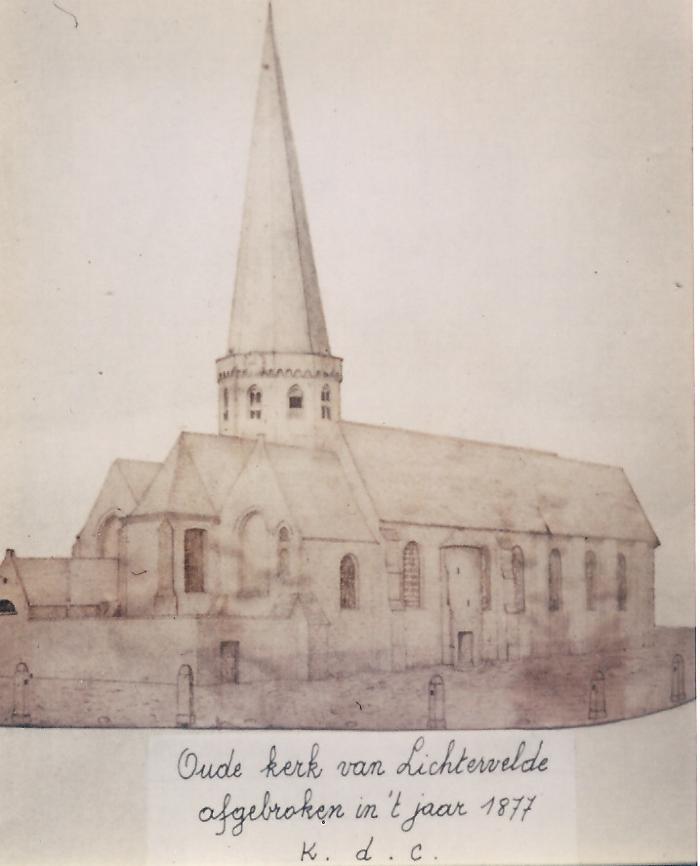 Oude kerk van Lichtervelde
afgebroken in 't jaar 1877
K. d. c.